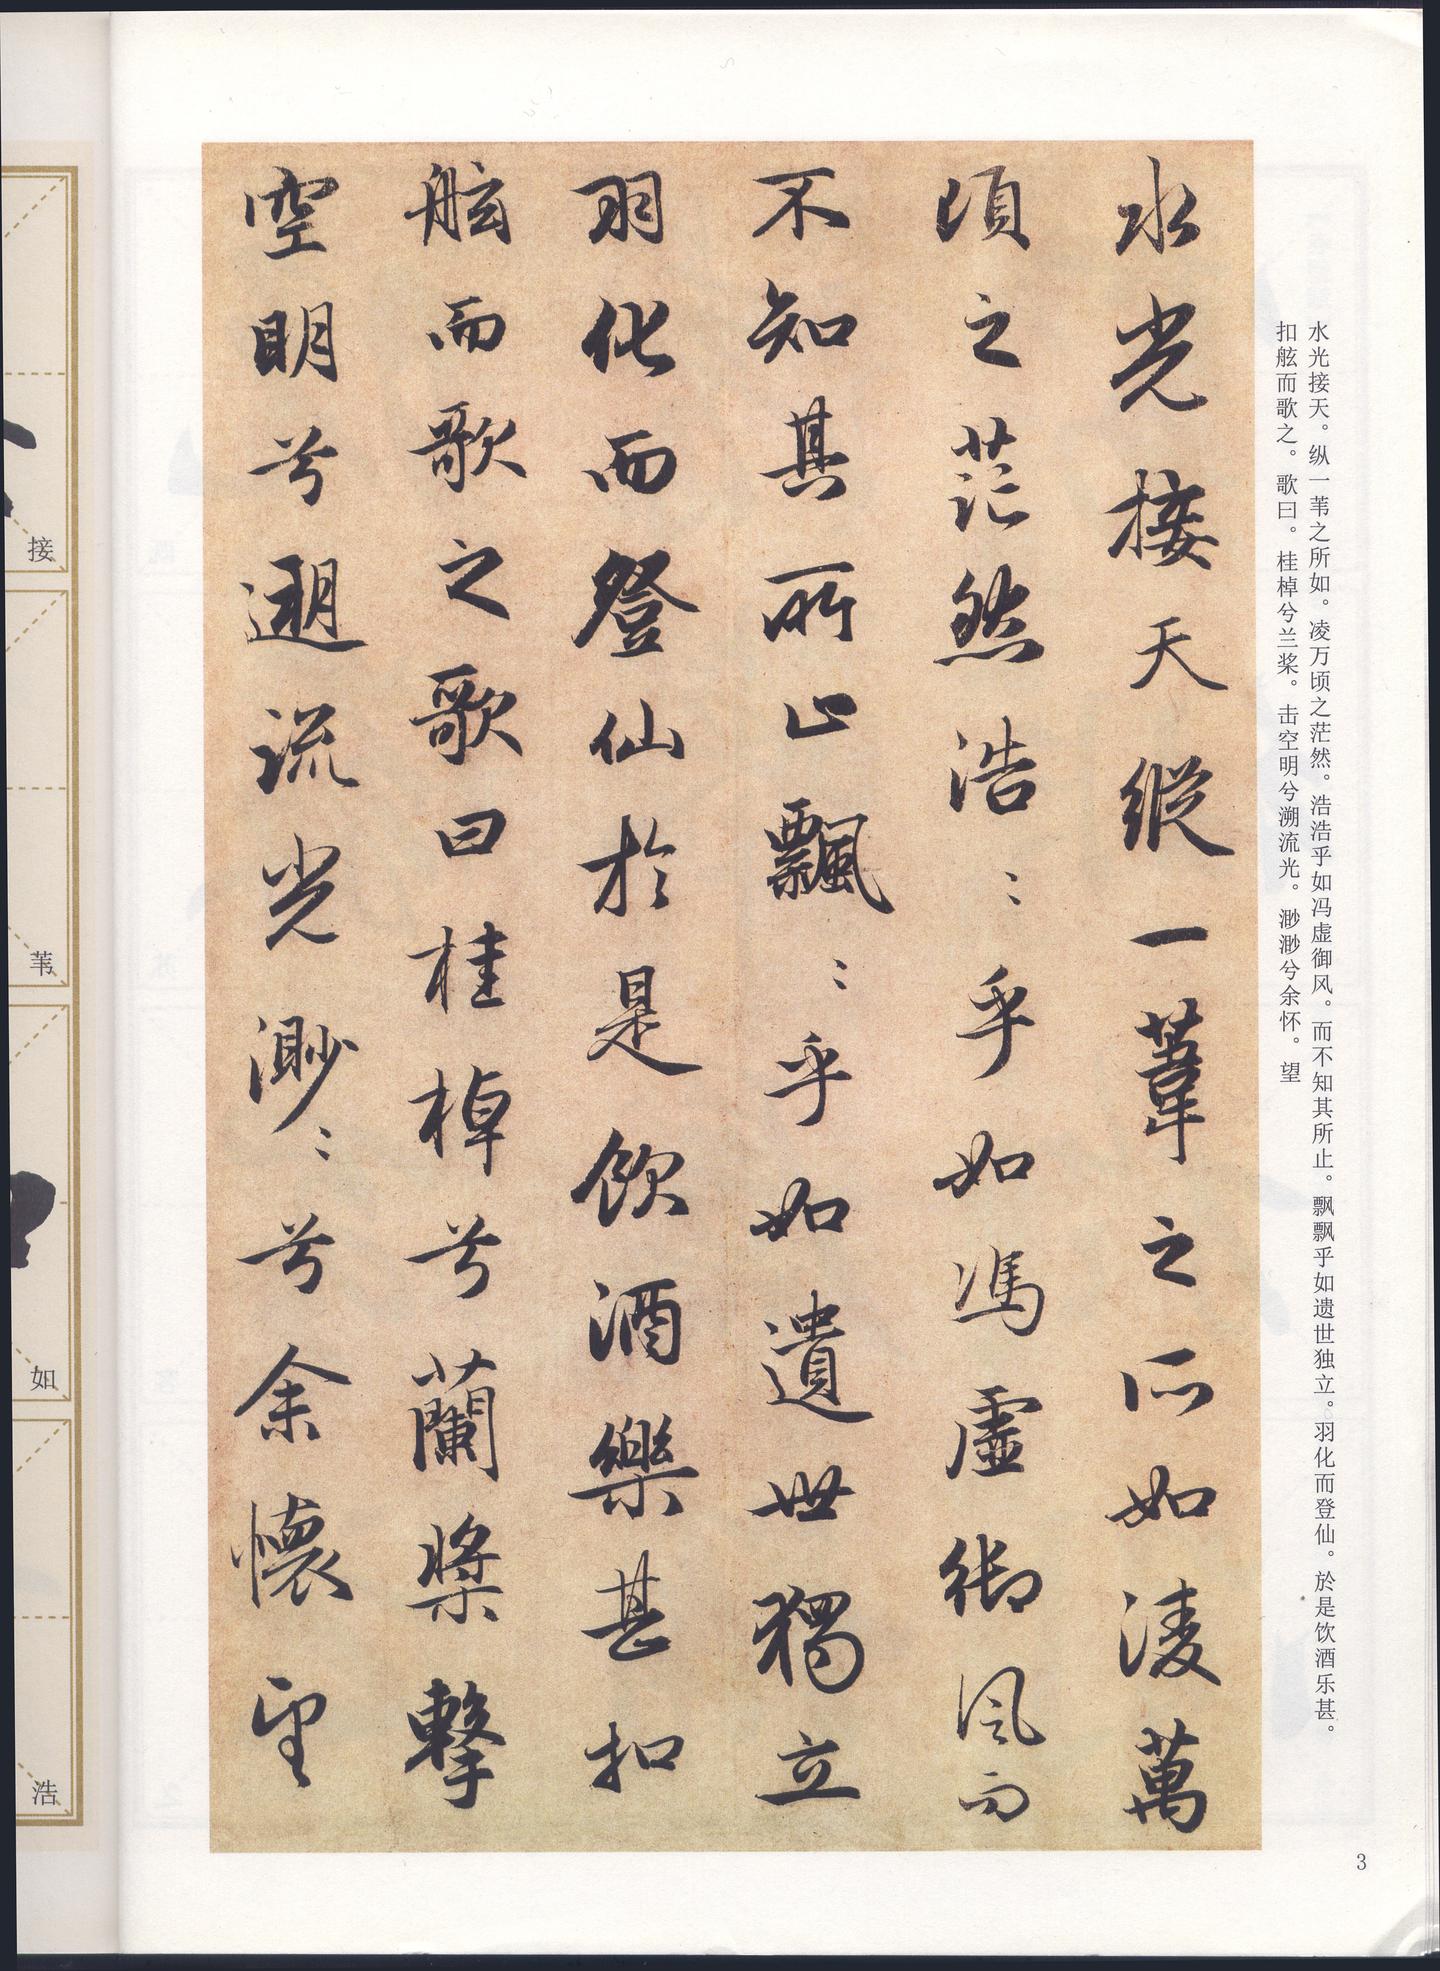 水光接天。纵一苇之所如。凌万顷之茫然。浩浩乎如冯虚御风。而不知其所止。飘飘乎如遗世独立。羽化而登仙。於是饮酒乐甚。
扣舷而歌之。歌曰。桂棹兮兰桨。击空明兮溯流光。渺渺兮余怀。望
水光接天縱一葦之所如凌萬
頃之茫然浩〻乎如馮虛御風而
不知其所止飄〻乎如遺世獨立
羽化而登仙於是飲酒樂甚扣
舷而歌之歌曰桂棹兮蘭槳擊
空明兮遡流光渺〻兮余懷望
3
接
苇
如
浩